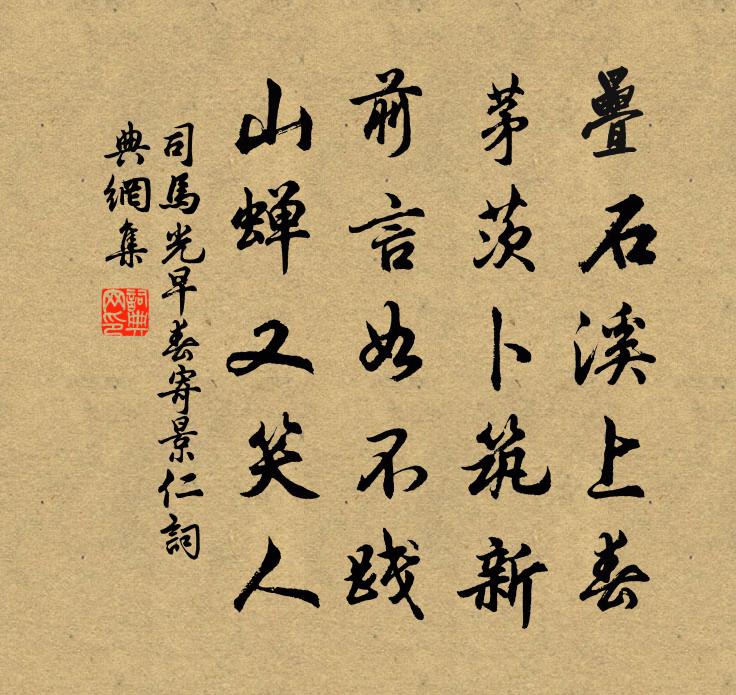 疊石溪上春
茅茨卜筑新
前言如不踐
山蝉又笑人
司馬光早春寄景仁詞
典網集
詞典網印